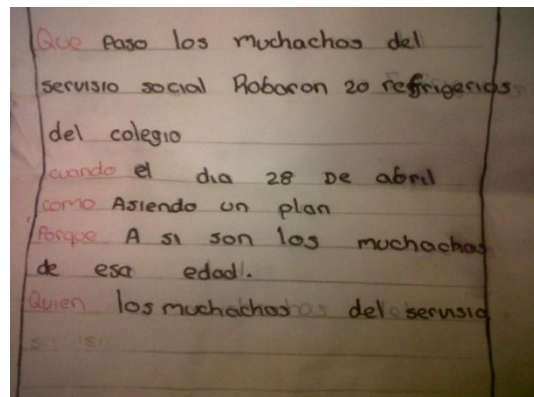 Que Paso los muchachos del
servisio social Robaron 20 refrigerios
del colegio
cuando el dia 28 De abril
como Asiendo un plan
Porque A si son los muchachos
de esa edad.
Quien los muchachos del servisio